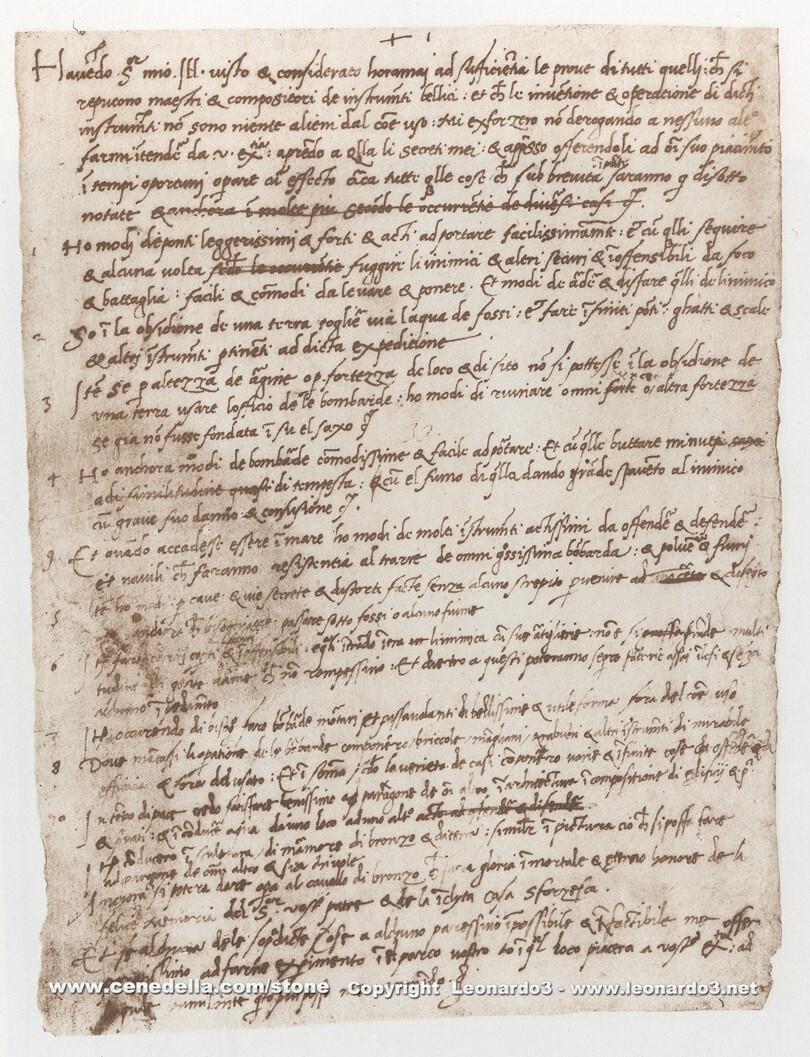 Havẽdo Sr mio Ill. visto & considerato horamai ad sufficiẽtia le prove di tutti quelli ch̃ si
reputono maestri & compositori de instrumti bellici : et ch̃ le invẽtione & operatione di dicti
instrumti nõ sono niente alieni dal cõe uso : Mi exforzero nõ derogando a nessuno alt°
farmi ĩtendẽ da v. extia : aprẽdo a qlla li secreti mei : & apsso offerendoli ad õi suo piacimto
ĩ tempi oportuni operare cũ effecto circa tutte qlle cose ch̃ sub brevita saranno q disotto
notate & anchora ĩ molte piu secõdo le occurrẽtie de diversi casi
1 Ho modi de ponti leggerissimi & forti & acti ad portare facilissimamte : et cũ qlli seguire
& alcuna volta fuggire li inimici & altri securi & ĩoffensibili da foco
& battaglia : facili & cõmodi da levare & ponere. Et modi de ardẽ & disfare qlli de linimico
2 So ĩ la obsidione de una terra toglie via laqua de fossi : et fare ĩfiniti põti ghatti & scale
& altri ĩstrumti ptinẽti ad dicta expeditione
3 Itẽ se p altezza de argine o p fortezza de loco & di sito nõ si pottesse ĩ la obsidione de
una terra usare lofficio de le bombarde : ho modi di ruinare omni forte o altra fortezza
se gia nõ fusse fondata ĩ su el saxo
4 Ho anchora modi de bombarde cõmodissime & facile ad portare : Et cũ qlle buttare minuti saxi
ad similitudine quasi di tempesta : & cũ el fumo di qlla dando grãde spavẽto al inimico
cũ grave suo danno & confusione
9 Et quãdo accadesse essere ĩ mare ho modi de molti ĩstrumti actissimi da offendẽ & defendẽ :
et navili ch̃ faranno resistentia al trarre de omni grossissima bõbarda : & polvẽ & fumi
5 Itẽ ho modi p cave & vie secrete & distorte facte senza alcuno strepito p venire ad & disegnato
anchora ch̃ bisognasse passare sotto fossi o alcuno fiume
6 Itẽ faro carri coperti & ĩoffensibili : e qli ĩtrãdo ĩtra linimica cũ sue artiglierie nõ e si multi
tudine di gẽte darme ch̃ nõ rompessino : Et dietro a questi poteranno seguire fanterie assai ĩlesi & senza
alchuno ĩpedimto
7 Itẽ occurrendo di bisogno faro bõbarde mortari et passavolanti di bellissime & utile forme fora del cõe uso
8 Dove mãcassi la operatione de le bõbarde componero briccole mãghani trabuchi & altri ĩstrumti di mirabile
efficacia & fora del usato : Et ĩ sõma secõdo la varieta de casi cõponero varie & ĩfinite cose da offendẽ &
10 In tẽpo di pace credo satisfare benissimo ad paragone de õi altro ĩ architectura ĩ compositione di edificii & p
& privati : & ĩ conducẽ aqua da uno loco ad uno alt°
Itẽ conducero ĩ sculptura di marmore di bronzo & di terra : similr ĩ pictura cio ch̃ si possa fare
ad paragone de omni altro & sia chi vole
Anchora si potera dare opa al cavallo di bronzo ch̃ sara gloria ĩmortale & eterno honore de la
felice memoria del Sr vostro patre & de la ĩclyta casa Sforzesca.
Et se alchuna de le sopra dicte cose a alchuno paressino ĩpossibile & ĩfactibile me offero
paratissimo ad farne experimento ĩ el parco vostro o ĩ qual loco piacera a vostra extia : ad
www.cenedella.com/stone Copyright Leonardo3 - www.leonardo3.net